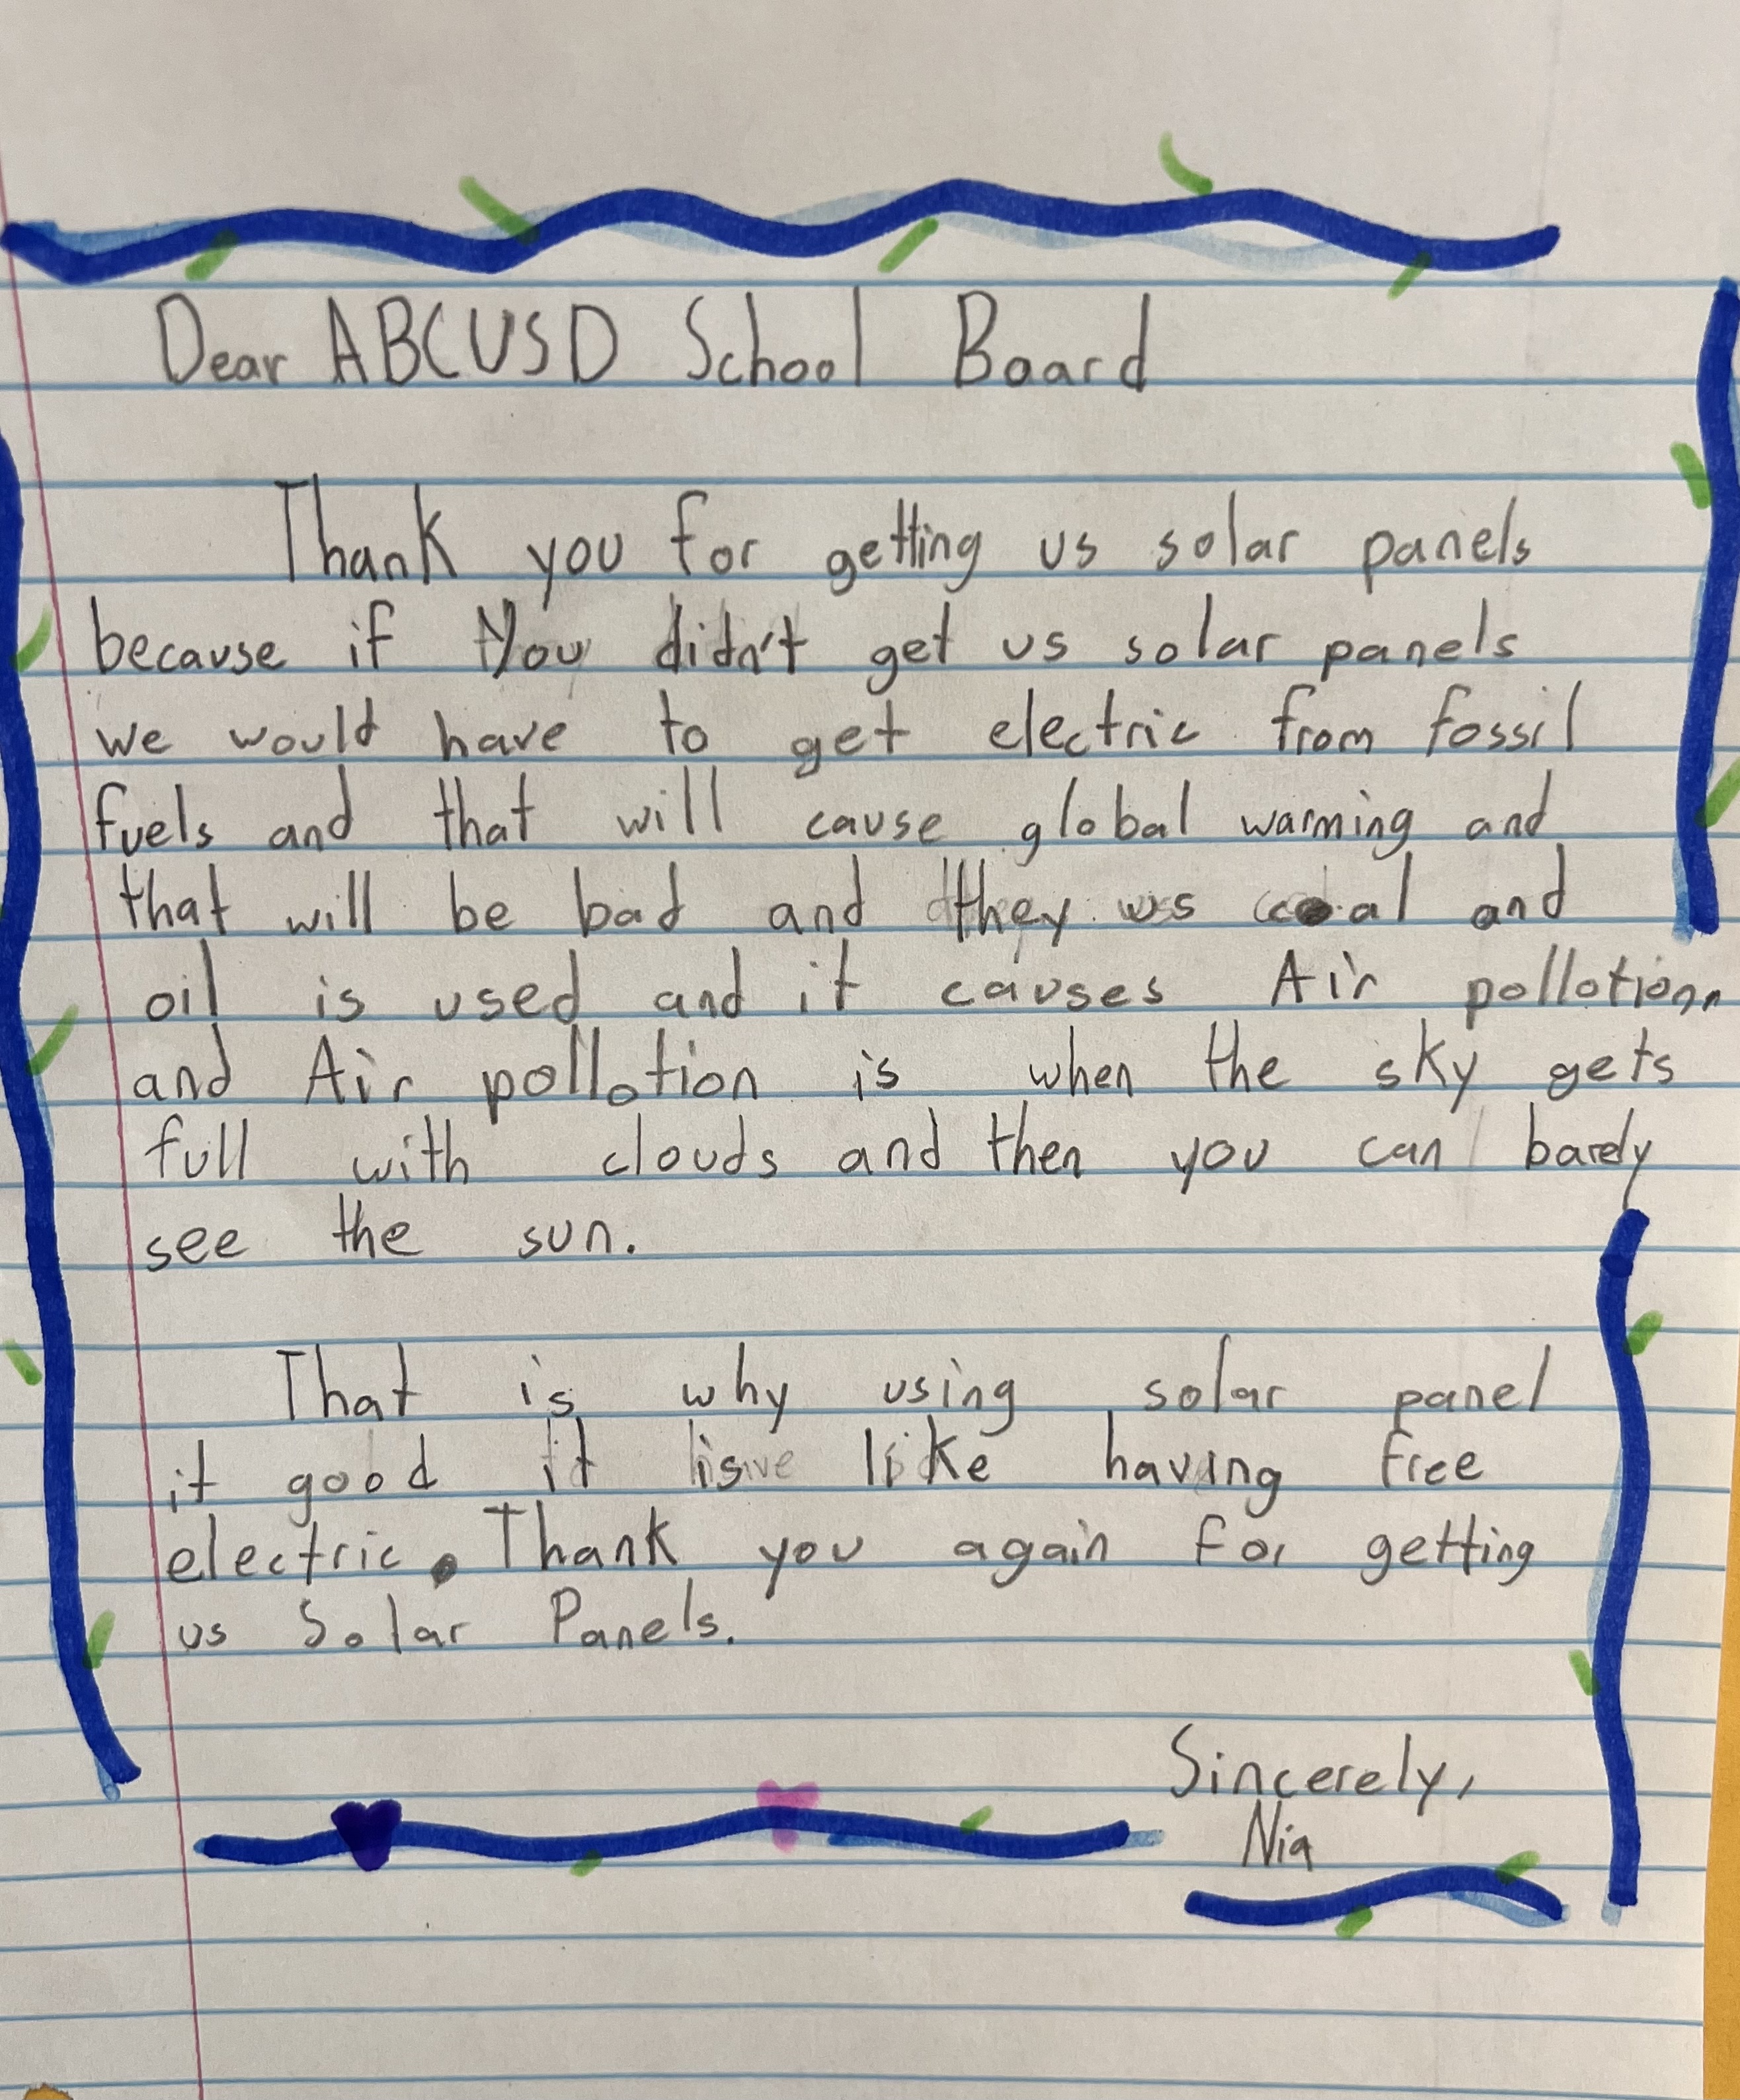 Dear ABCUSD School Board
Thank you for getting us solar panels
because if You didn't get us solar panels
we would have to get electric from fossil
fuels and that will cause global warming and
that will be bad and they us coal and
oil is used and it causes Air pollotion,
and Air pollotion is when the sky gets
full with clouds and then you can barely
see the sun.
That is why using solar panel
it good it is like having free
electric. Thank you again for getting
us Solar Panels.
Sincerely,
Nia